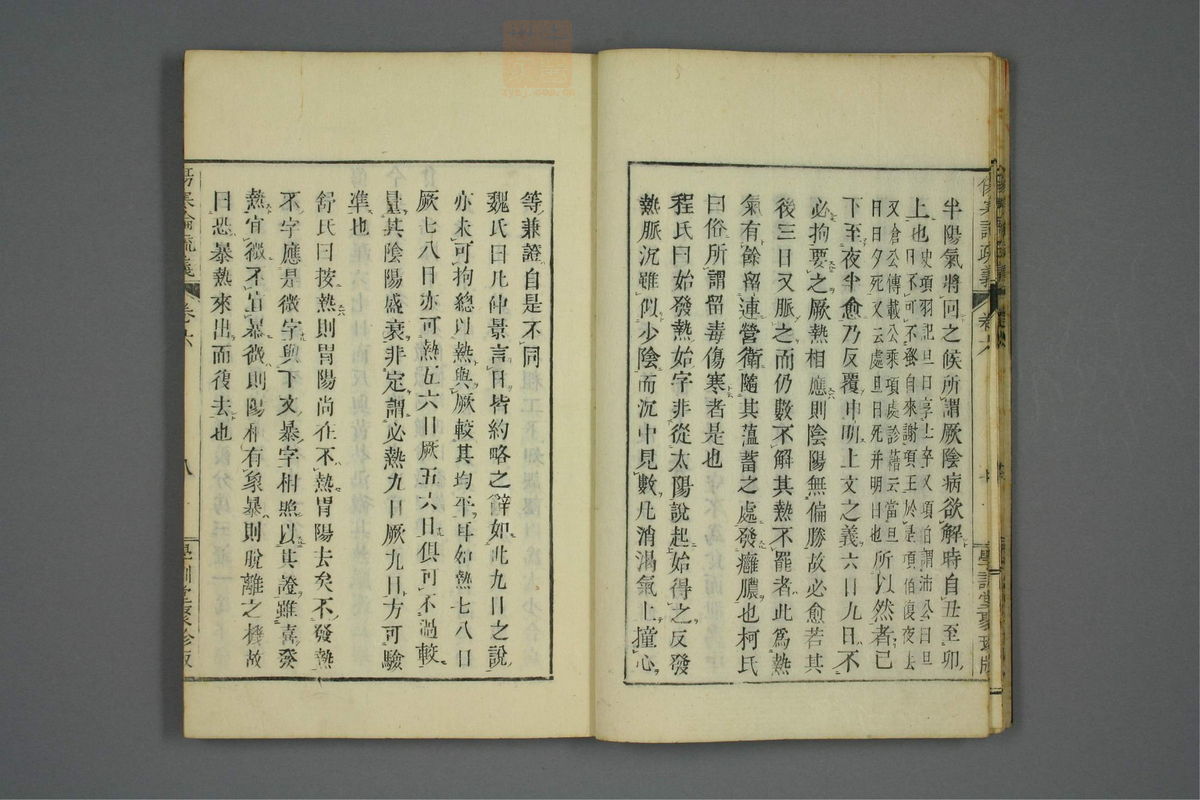 半陽氣將回之候所謂厥陰病欲解時自丑至卯
上也史項羽紀旦日享士卒又項伯謂沛公曰旦
日不可不蚤自來謝項王於是項伯復夜去
又倉公傳載公乘項處診藉云當旦
日日夕死又云處旦日死并明日也所以然者已
下至夜半愈乃反覆申明上文之義六日九日不
必拘要之厥熱相應則陰陽無偏勝故必愈若其
後三日又脈之而仍數不解其熱不罷者此爲熱
氣有餘留連營衛隨其薀蓄之處發癰膿也柯氏
曰俗所謂留毒傷寒者是也
程氏曰始發熱始字非從太陽說起始得之反發
熱脈沉雖似少陰而沉中見數凡消渴氣上撞心
等兼證自是不同
魏氏曰凡仲景言日皆約略之辭如此九日之說
亦未可拘總以熱與厥較其均平耳如熱七八日
厥七八日亦可熱五六日厥五六日俱可不過較
量其陰陽盛衰非定謂必熱九日厥九日方可驗
準也
舒氏曰按熱則胃陽尚在不熱胃陽去矣不發熱
不字應是微字與下文暴字相照以其證雖喜發
熱宜微不宜暴微則陽相有象暴則脫離之機故
曰恐暴熱來出而後去也
傷寒論疏義 卷六 八 學訓堂聚珍版